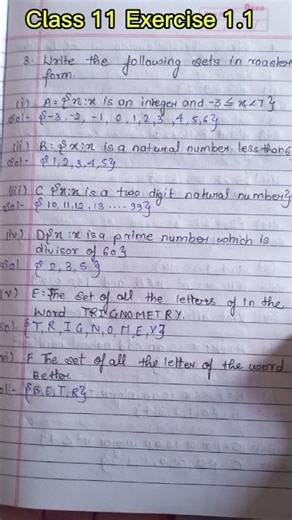 Class 11 Exercise 1.1
3. Write the following sets in roaster
form.
(i) A = {x : x is an integer and -3 ≤ x < 7}
Sol- {-3, -2, -1, 0, 1, 2, 3, 4, 5, 6}
(ii) B = {x : x is a natural number less than 6
Sol- {1, 2, 3, 4, 5}
(iii) C {x : x is a two digit natural number}
Sol- {10, 11, 12, 13 ..... 99}
(iv) D {x : x is a prime number which is
divisor of 60}
Sol {2, 3, 5}
(v) E = The set of all the letters of in the
Word TRIGNOMETRY.
Sol. {T, R, I, G, N, O, M, E, Y}
vi) F The set of all the letter of the word
Better
ol- {B, E, T, R}